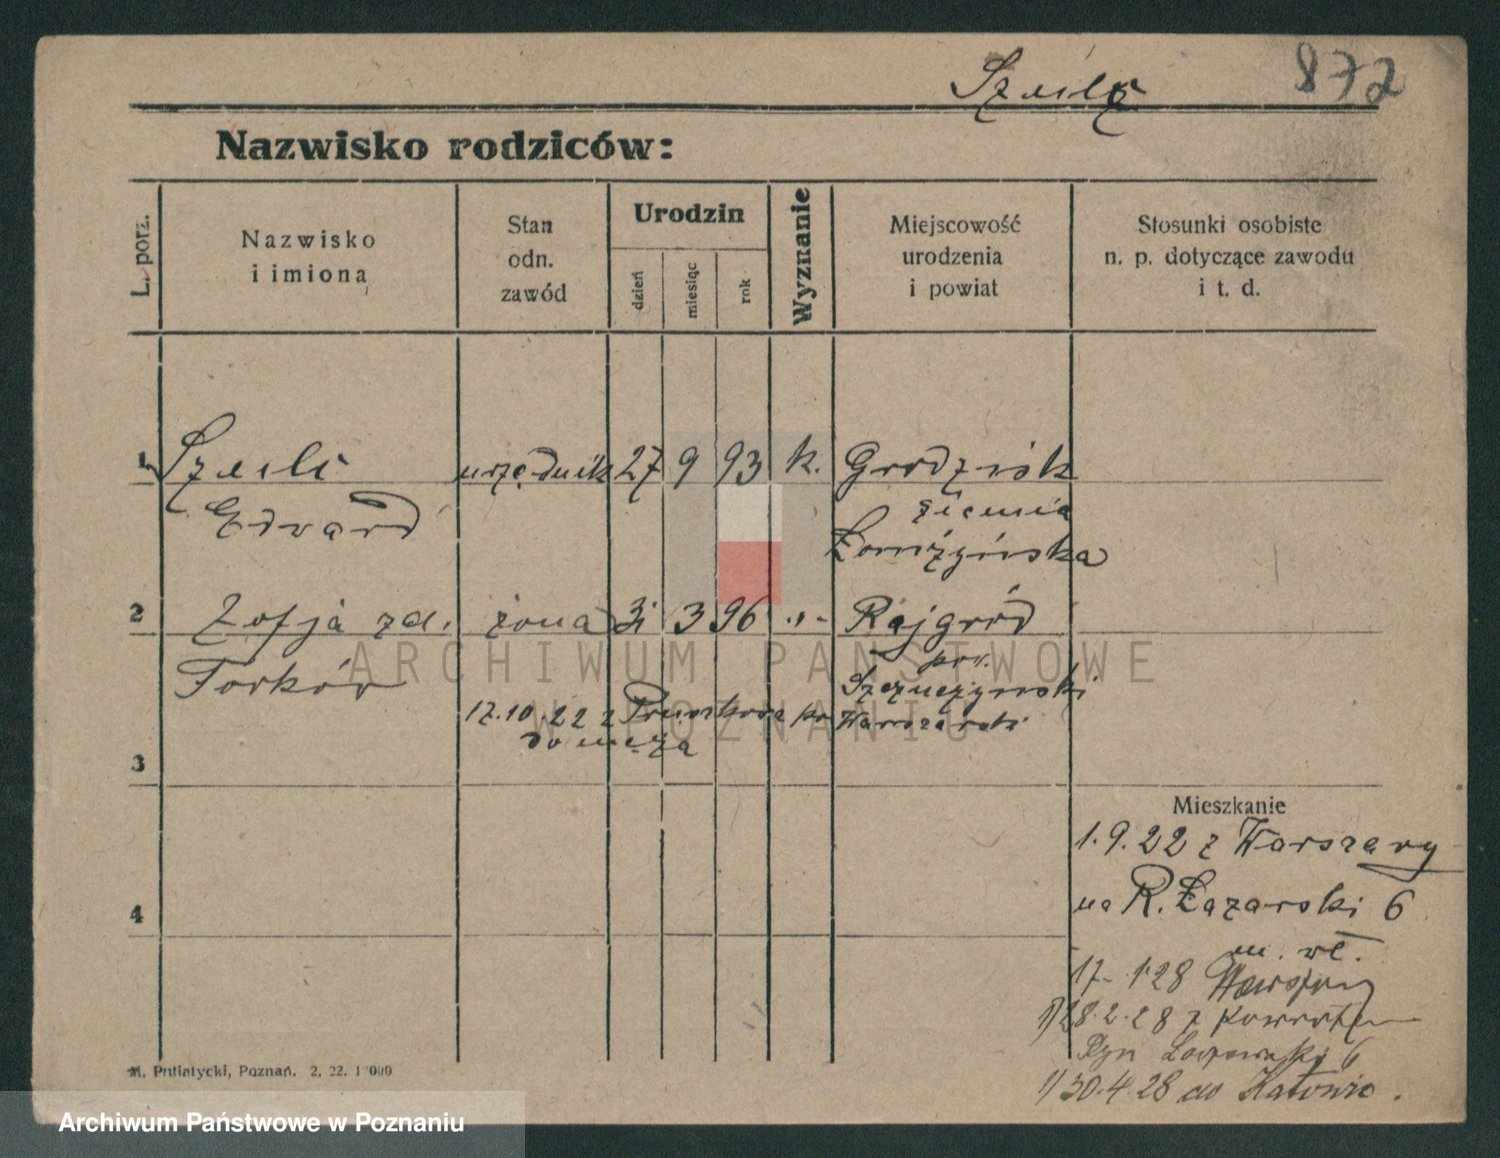 872
Nazwisko rodziców:
L. porz.
Nazwisko
i imiona
Stan
odn.
zawód
Urodzin
dzień
miesiąc
rok
Wyznanie
Miejscowość
urodzenia
i powiat
Stosunki osobiste
n. p. dotyczące zawodu
i t. d.
1 urzędnik 27 9 93 k. Grodzisk
Edward ziemia
Łomżyńska
2 Zofja zd. żona 31 3 96 -"- Rajgród
Forkór pow.
Szczuczyński
17.10.22 z Pruszkowa pow Warszawski
do męża
3
Mieszkanie
1.9.22 z Warszawy
na R. Łazarski 6
4
m. wł.
17-1 28 Warszawy
28.2.28 z powrotem
Ryn Łazarski 6
30.4.28 do Katowic.
M. Putiatycki, Poznań. 2. 22. 1 000
ARCHIWUM PAŃSTWOWE
W POZNANIU
Archiwum Państwowe w Poznaniu